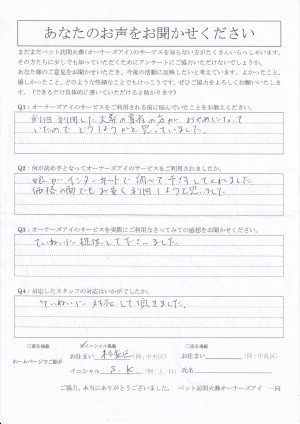 あなたのお声をお聞かせください
まだまだペット訪問火葬(オーナーズアイ)のサービスを知らない方がたくさんいらっしゃいます。
その方たちに少しでも知っていただくためにアンケートにご協力いただけないでしょうか。
あなた様のご意見をお聞かせいただき、今後の活動に反映したいと考えています。よかったこと、
嬉しかったこと、どのような些細なことでもけっこうです。ぜひご協力をよろしくお願いいたします。
(できるだけ具体的に書いていただけると助かります)
Q1：オーナーズアイのサービスをご利用される前に悩んでいたことをお教えください。
前回利用した火葬の
いたので どうしようかと思っていました。
Q2：何が決め手となってオーナーズアイのサービスをご利用されましたか。
娘がインターネットで調べて手付してくれました
価格の面でもお安く利用しようと思いました
Q3：オーナーズアイのサービスを実際にご利用なさってみての感想をお聞かせください。
ていねいに して下さいました。
Q4：対応したスタッフの対応はいかがでしたか。
ていねいに 対応して頂きました。
□実名掲載 ☑イニシャル掲載 □匿名掲載
ホームページでご紹介
お住まい 杉並区 (例：中央区) お住まい (例：中央区)
イニシャル S.K. (例：J.H) 氏名
ご協力、本当にありがとうございました。 ペット訪問火葬オーナーズアイ 一同